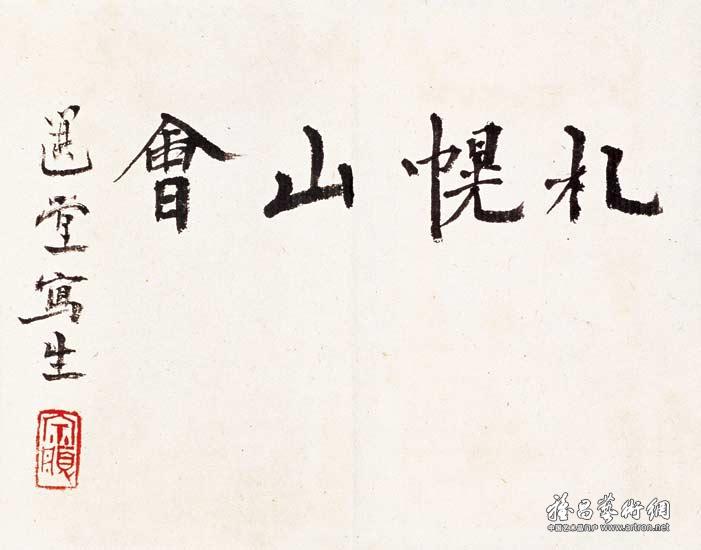 札幌山會
選堂寫生
宗頤
雅昌藝術網
中国艺术品门户 www.artron.net